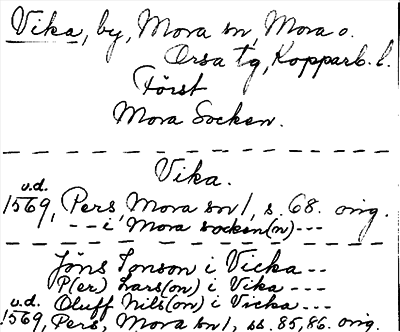 Vika, by, Mora sn, Mora o.
Orsa tg, Kopparb. l.
Först
Mora Socken.
Vika.
u.d.
1569, Pers, Mora sn 1, s. 68. orig.
-- i Mora socken(n) ---
Jöns Jonson i Vicka --
P(er) Lars(on) i Vika ---
u.d. Oluff Nils(on) i Vicka ---
1569, Pers, Mora sn 1, ss. 85, 86. orig.